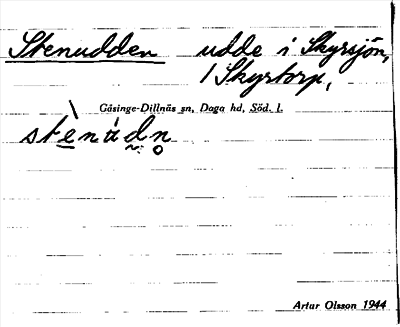 Stenudden udde i Skyrsjön,
/ Skyrtorp,
Gåsinge-Dillnäs sn, Daga hd, Söd. l.
stènúdn̥
Artur Olsson 1944